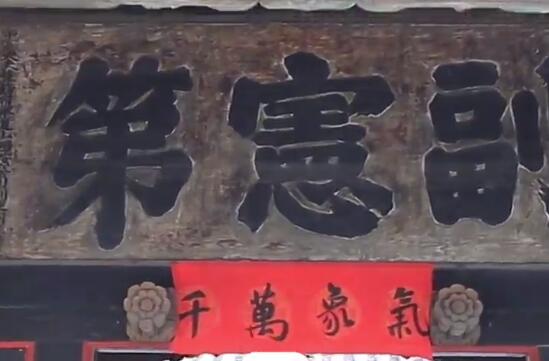 副憲第
氣象萬千